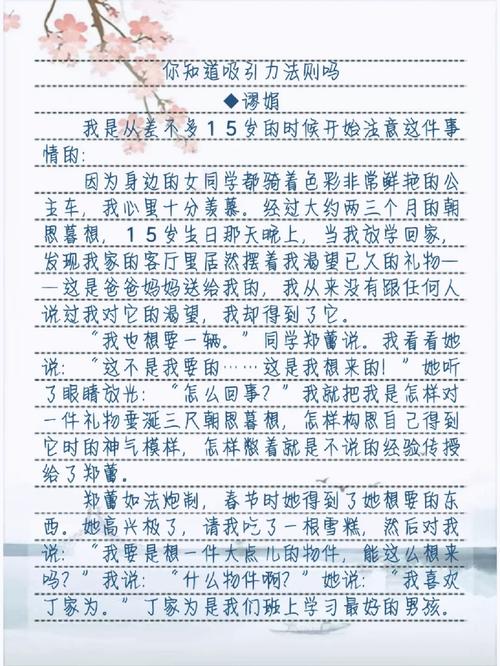 你知道吸引力法则吗
◆谬娟
我是从差不多15岁的时候开始注意这件事
情的:
因为身边的女同学都骑着色彩非常鲜艳的公
主车，我心里十分羡慕。经过大约两三个月的朝
思暮想，15岁生日那天晚上，当我放学回家，
发现我家的客厅里居然摆着我渴望已久的礼物—
—这是爸爸妈妈送给我的，我从来没有跟任何人
说过我对它的渴望，我却得到了它。
“我也想要一辆。”同学郑蕾说。我看着她
说：“这不是我要的……这是我想来的！”她听
了眼睛放光：“怎么回事？”我就把我是怎样对
一件礼物垂涎三尺朝思暮想，怎样构思自己得到
它时的神气模样，怎样憋着就是不说的经验传授
给了郑蕾。
郑蕾如法炮制，春节时她得到了她想要的东
西。她高兴极了，请我吃了一根雪糕，然后对我
说：“我要是想一件大点儿的物件，能这么想来
吗？”我说：“什么物件啊？”她说：“我喜欢
丁家为。”丁家为是我们班上学习最好的男孩。